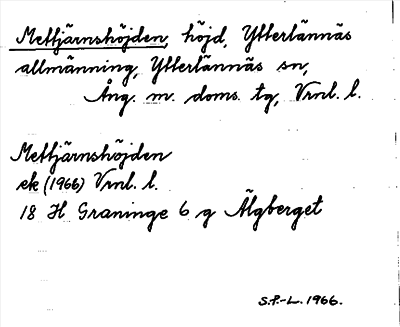 Mettjärnshöjden, höjd, Ytterlännäs
allmänning, Ytterlännäs sn,
Ång. m. doms. tg, Vrnl. l.
Mettjärnshöjden
ek (1966) Vrnl. l.
18 H Graninge 6 g Älgberget
S.P.-L. 1966.